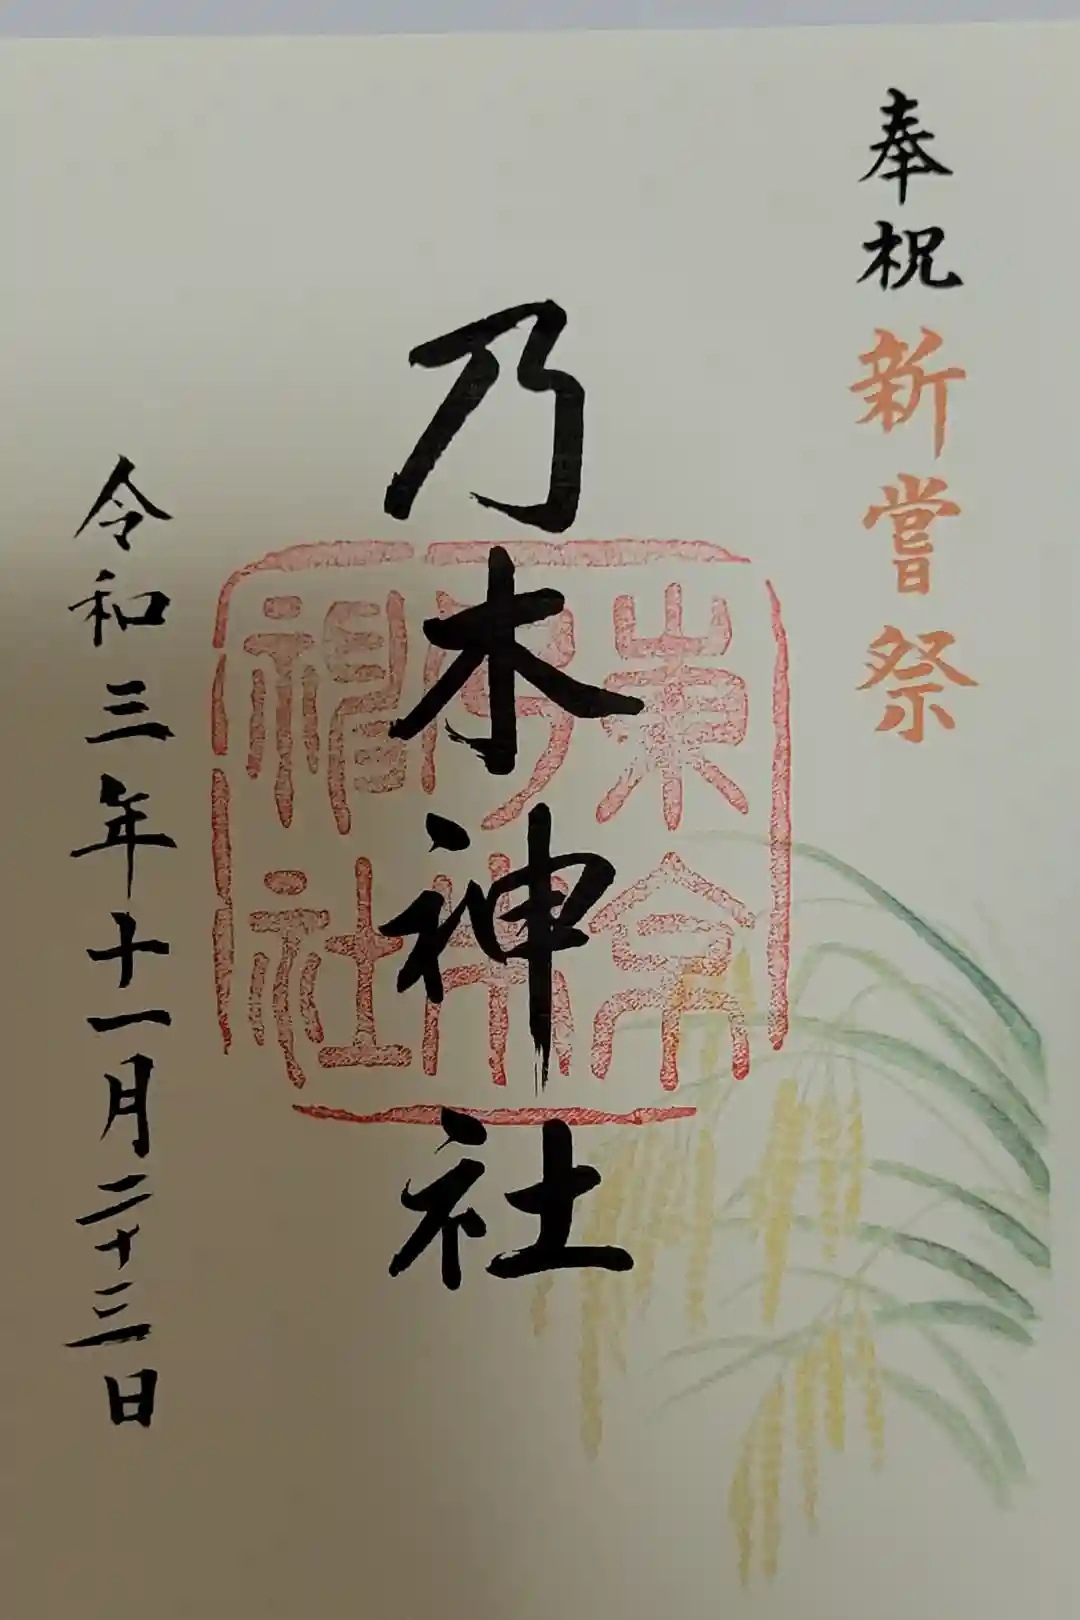 奉祝新嘗祭
乃木神社
東京乃木神社
令和三年十一月二十三日